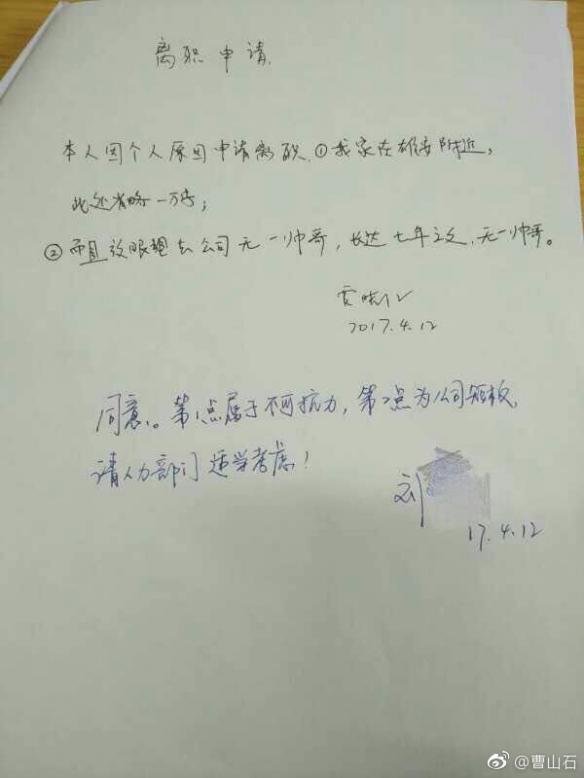 离职申请
本人因个人原因申请离职,①我家在雄安附近,
此处省略一万字;
②而且放眼望去公司无一帅哥,长达七年之久,无一帅哥。
2017.4.12
同意。第1点属于不可抗力,第2点为公司短板,
请人力部门适当考虑!
刘
17.4.12
@曹山石